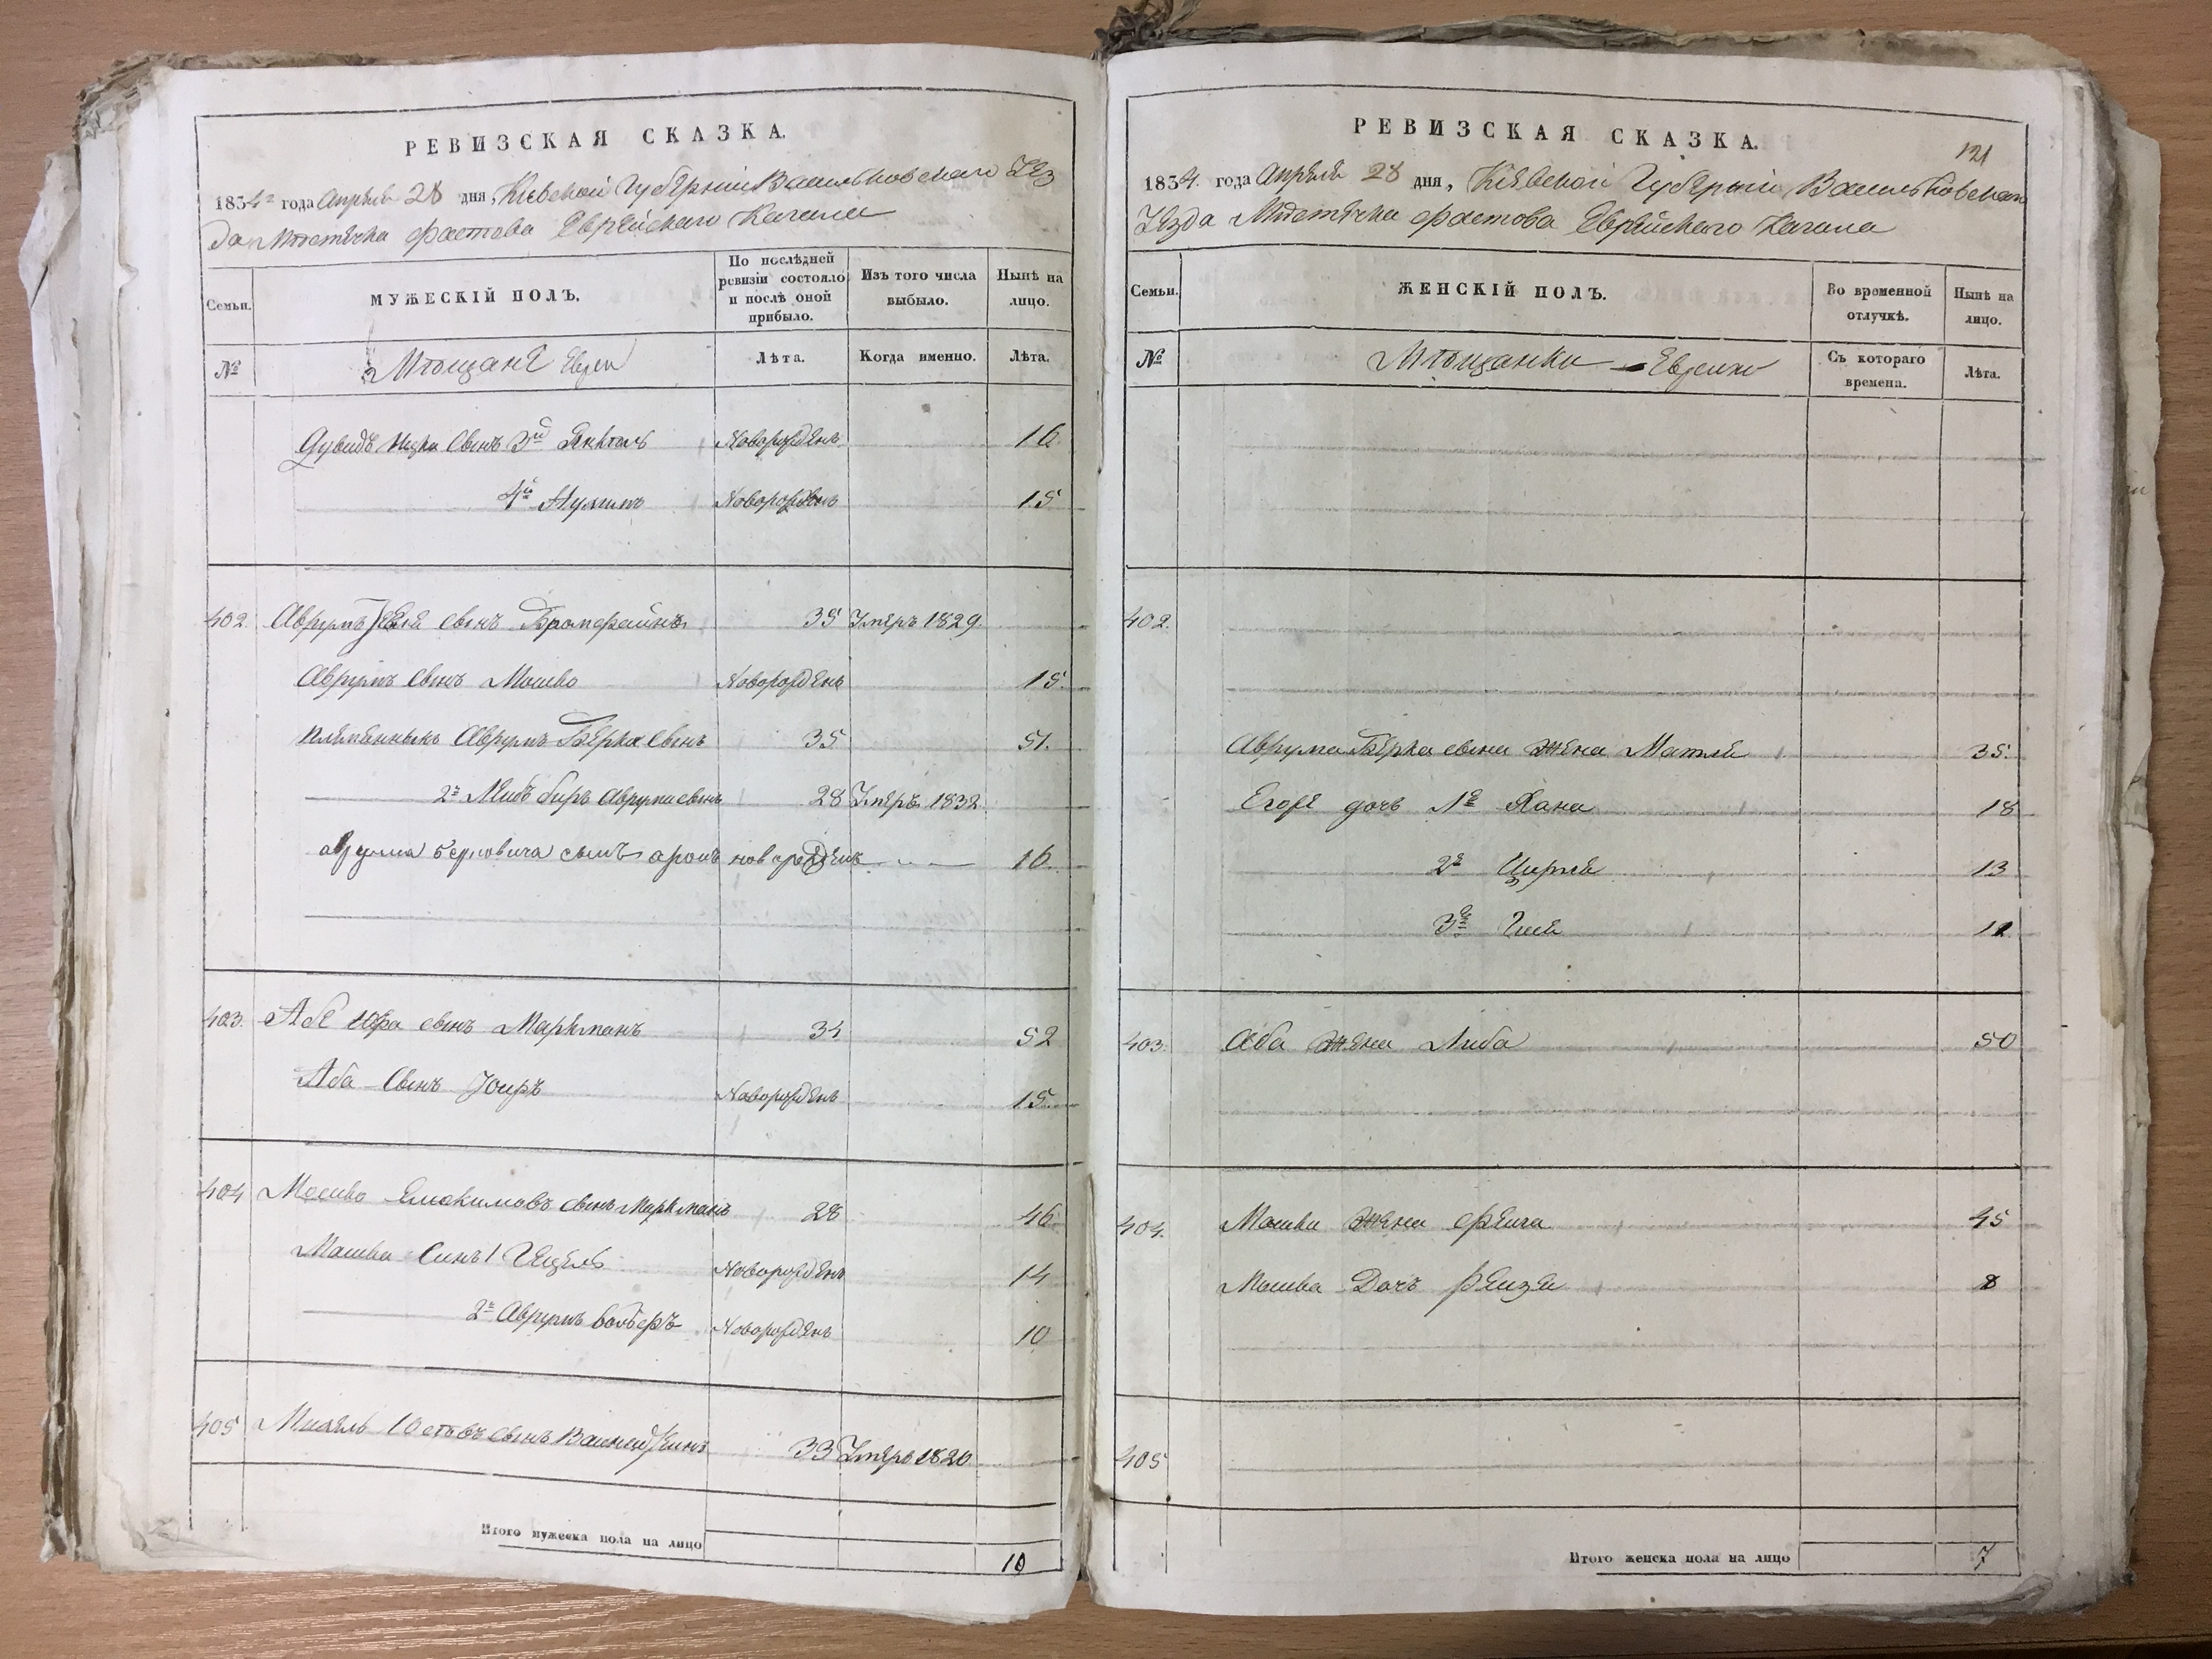 РЕВИЗСКАЯ СКАЗКА.
1834 года Апреля 28 дня, Киевской Губернии Васильковского Уез
да Местечка Фастова Еврейского Кагала
Семьи.
МУЖЕСКІЙ ПОЛЪ.
По послѣдней ревизіи состояло и послѣ оной прибыло.
Изъ того числа выбыло.
Нынѣ на лицо.
№
Мещане Евреи
Лѣта.
Когда именно.
Лѣта.
сынъ 3й Новорожденъ 16
4й Новорожденъ 15
402. Аврумъ сынъ 35 Умеръ 1829.
Аврумъ сынъ Мошко Новорожденъ 15.
племянникъ Аврумъ Берка сынъ 35 51.
2й 28 Умеръ 1832.
аврума берковича сынъ аронъ новорожденъ 16.
403. Абе сынъ Маркманъ 34 52
Аба сынъ Новорожденъ 15
404 Мошко сынъ Маркманъ 28 46
Мошка Синъ 1 Гецель Новорожденъ 14
2й Аврумъ Новорожденъ 10
405 сынъ 33 Умеръ 1820
Итого мужеска пола на лицо
10
РЕВИЗСКАЯ СКАЗКА.
121
1834. года Апреля 28 дня, Киевской Губернии Васильковскаго
Уезда Местечка Фастова Еврейского Кагала
Семьи.
ЖЕНСКІЙ ПОЛЪ.
Во временной отлучкѣ.
Нынѣ на лицо.
№
Мещанки Еврейки
Съ котораго времени.
Лѣта.
402.
Аврума Берка сына жена Матля 35.
Егоре дочь 1е Хана 18
2е Цирля 13
3е
403. Аба жена Либа 50
404. Мошка жена Фейга 45
Мошка Дочъ Рейзя 8
405
Итого женска пола на лицо
7